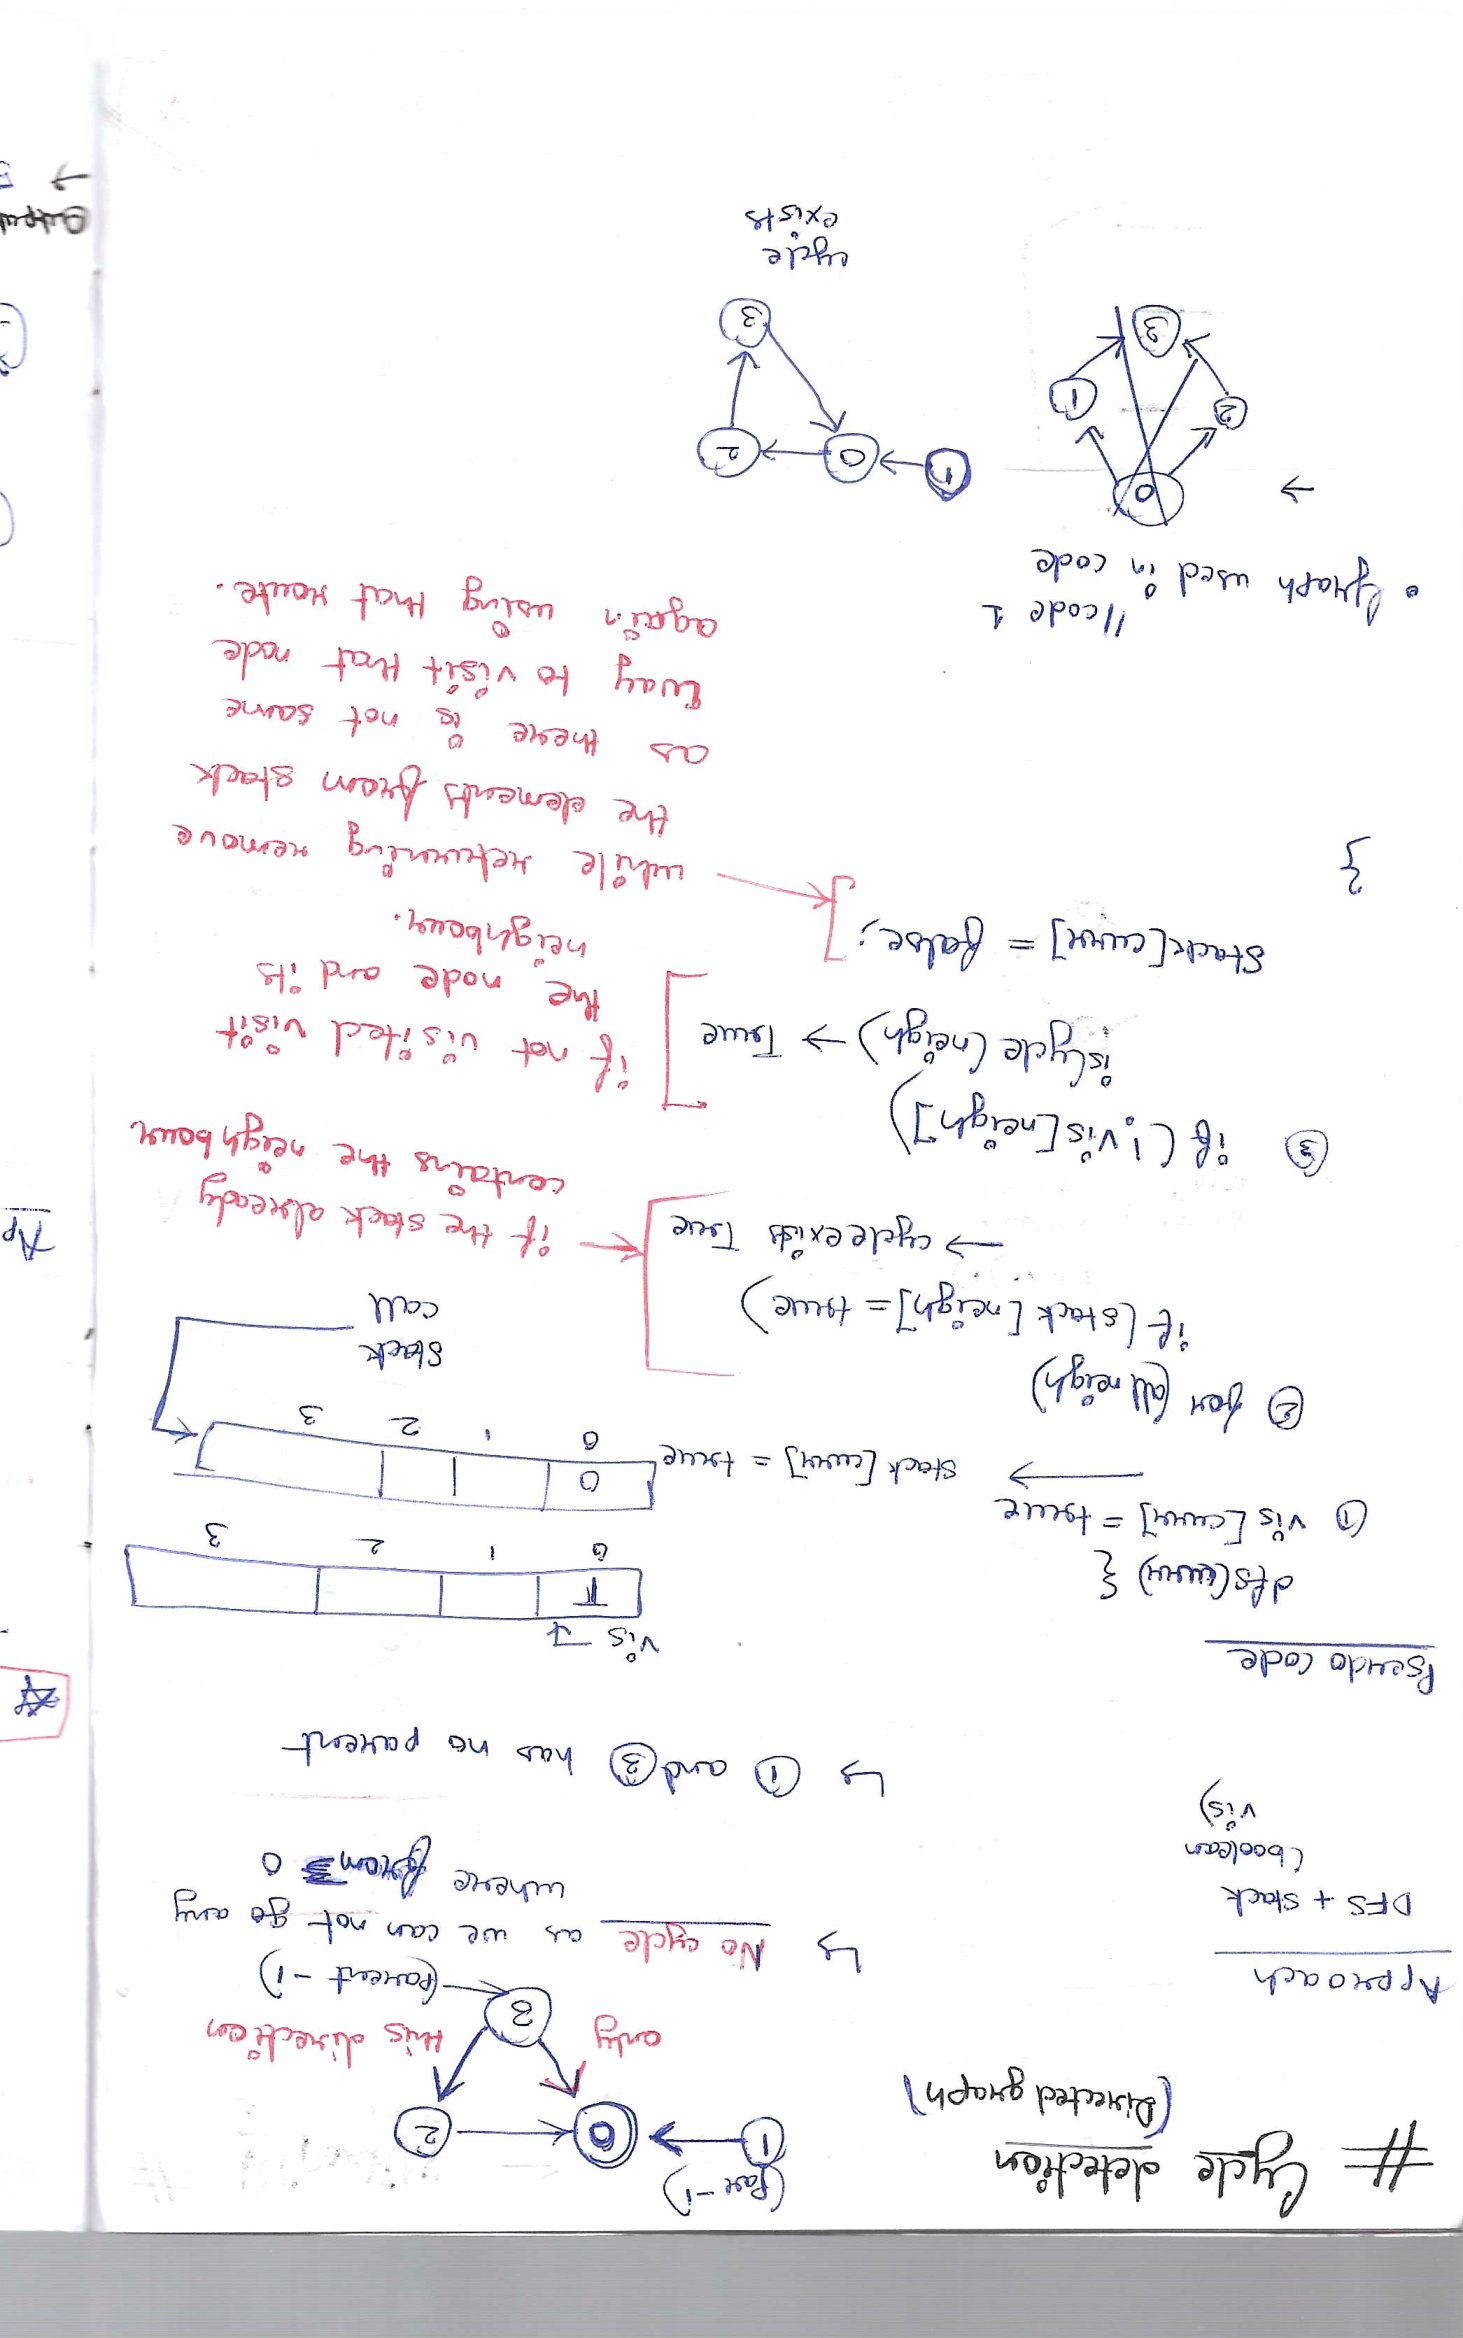 # Cycle detection
(Directed graph)
(Par -1)
1
0
2
3
only
this direction
(parent -1)
Approach
DFS + stack
(boolean
vis)
↳ No cycle as we can not go any
where from 0
↳ ① and ③ has no parent
Pseudo code
dfs(curr) {
① vis[curr] = true
→ stack[curr] = true
vis
T
0 1 2 3
0
0 1 2 3
stack
call
② for (all neigh)
if (stack[neigh] = true)
→ cycle exists True
if the stack already
contains the neighbour
③ if (!vis[neigh])
isCycle(neigh) → True
if not visited visit
the node and its
neighbour.
stack[curr] = false;
}
while returning remove
the elements from stack
as there is not same
way to visit that node
again using that route.
//code 1
• Graph used in code
→
0
2
1
3
1
0
2
3
cycle
exists
Ap
→ 5